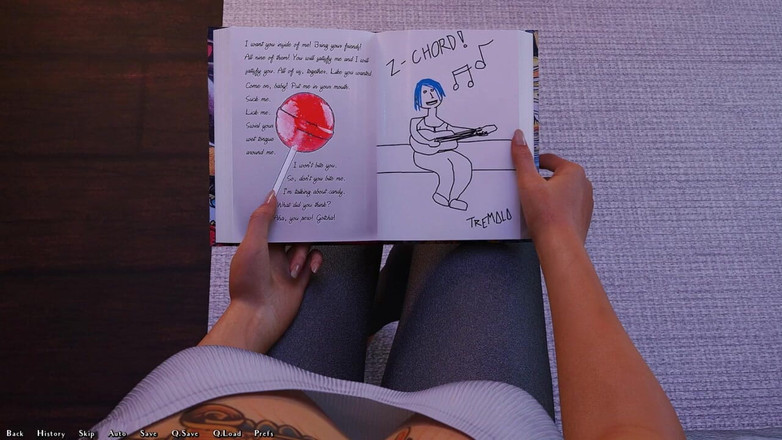 I want you inside of me! Bring your friends!
All nine of them! You will satisfy me and I will
satisfy you. All of us, together. Like you wanted.
Come on, baby! Put me in your mouth.
Suck me.
Lick me.
Swirl your
wet tongue
around me.
I won't bite you.
So, don't you bite me.
I'm talking about candy.
What did you think?
you perv! Gotcha!
Z-CHORD!
TREMOLO
Back History Skip Auto Save Q.Save Q.Load Prefs